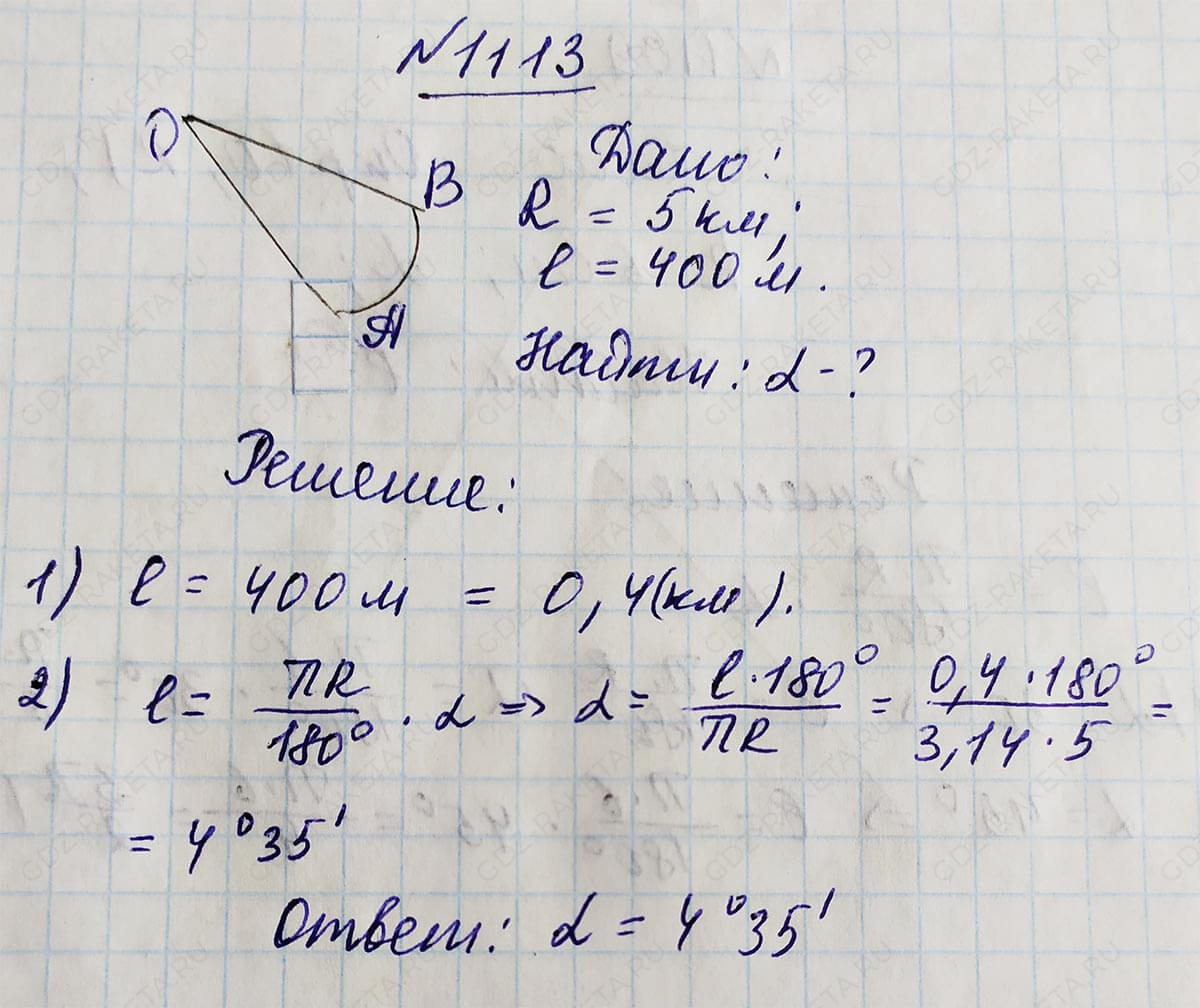 №1113
O
B
A
Дано:
R = 5 км;
l = 400 м.
Найти: α - ?
Решение:
1) l = 400 м = 0,4(км).
2) l = πR/180° · α => α = l·180°/πR = 0,4·180°/3,14·5 =
= 4°35'
Ответ: α = 4°35'
GDZ-RAKETA.RU